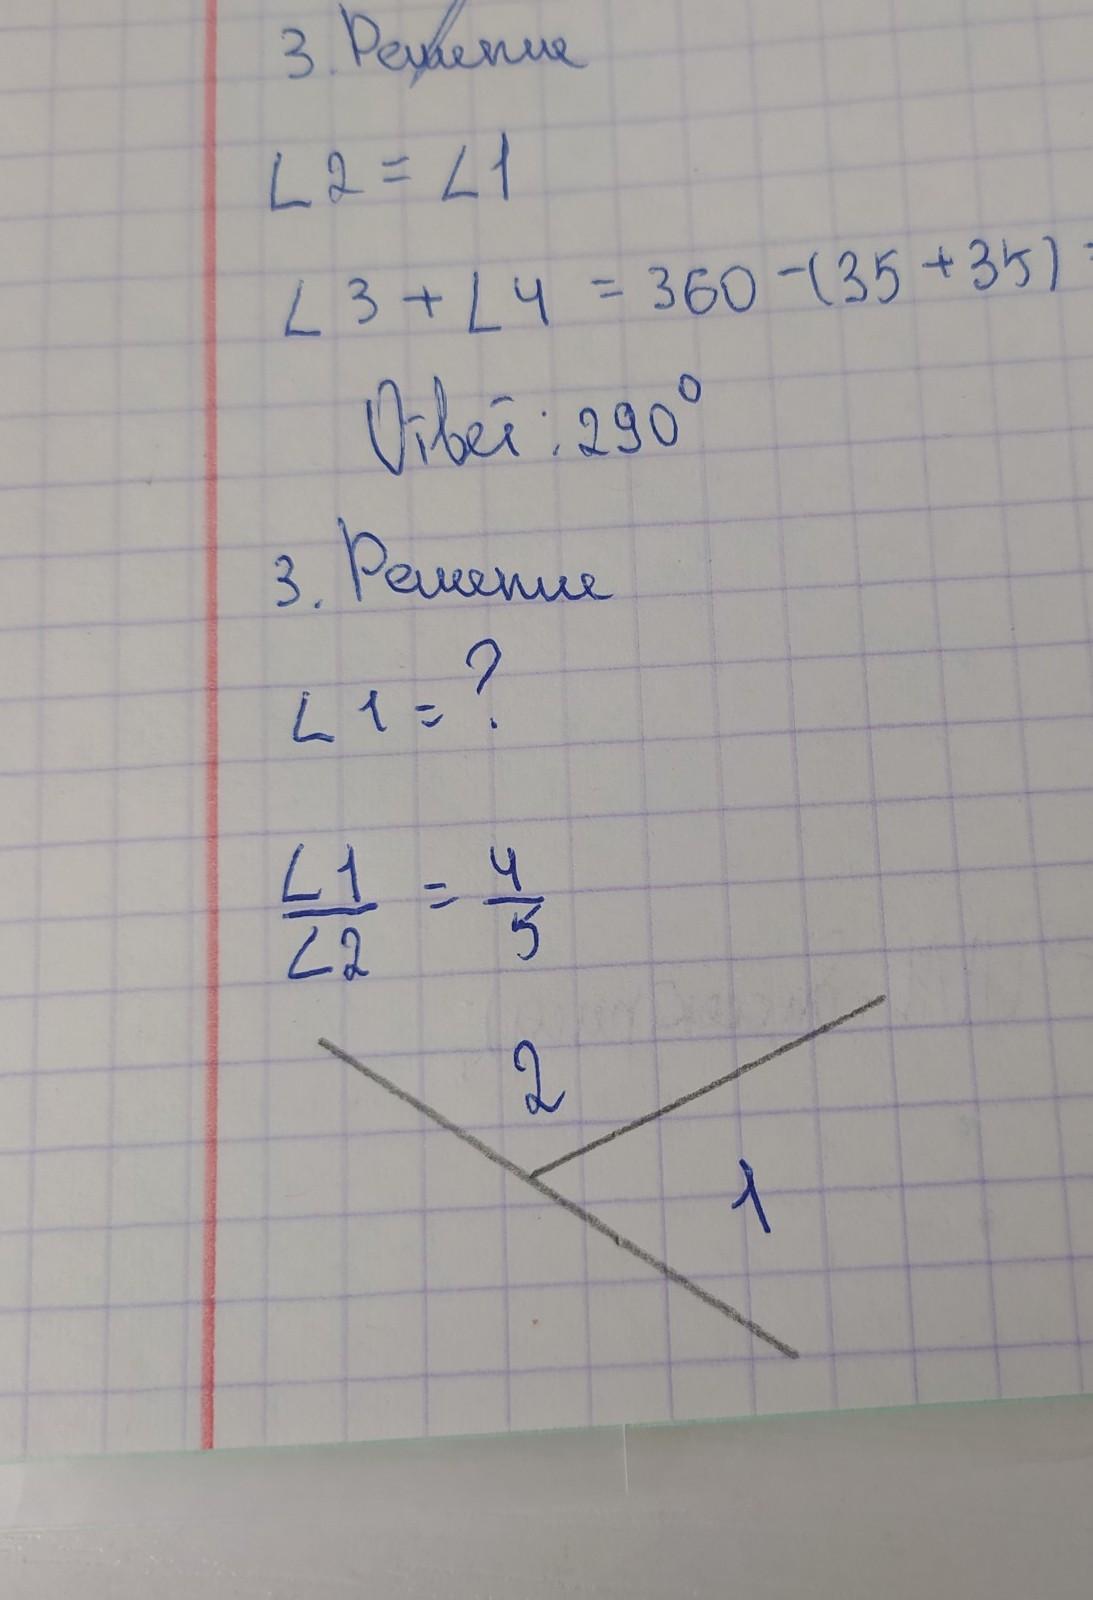 3. Решение
∠2 = ∠1
∠3 + ∠4 = 360 - (35 + 35) =
Ответ: 290°
3. Решение
∠1 = ?
∠1/∠2 = 4/5
2
1